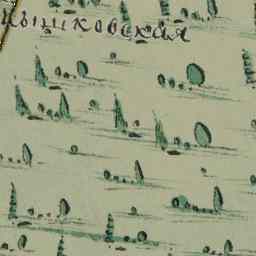 ышковская